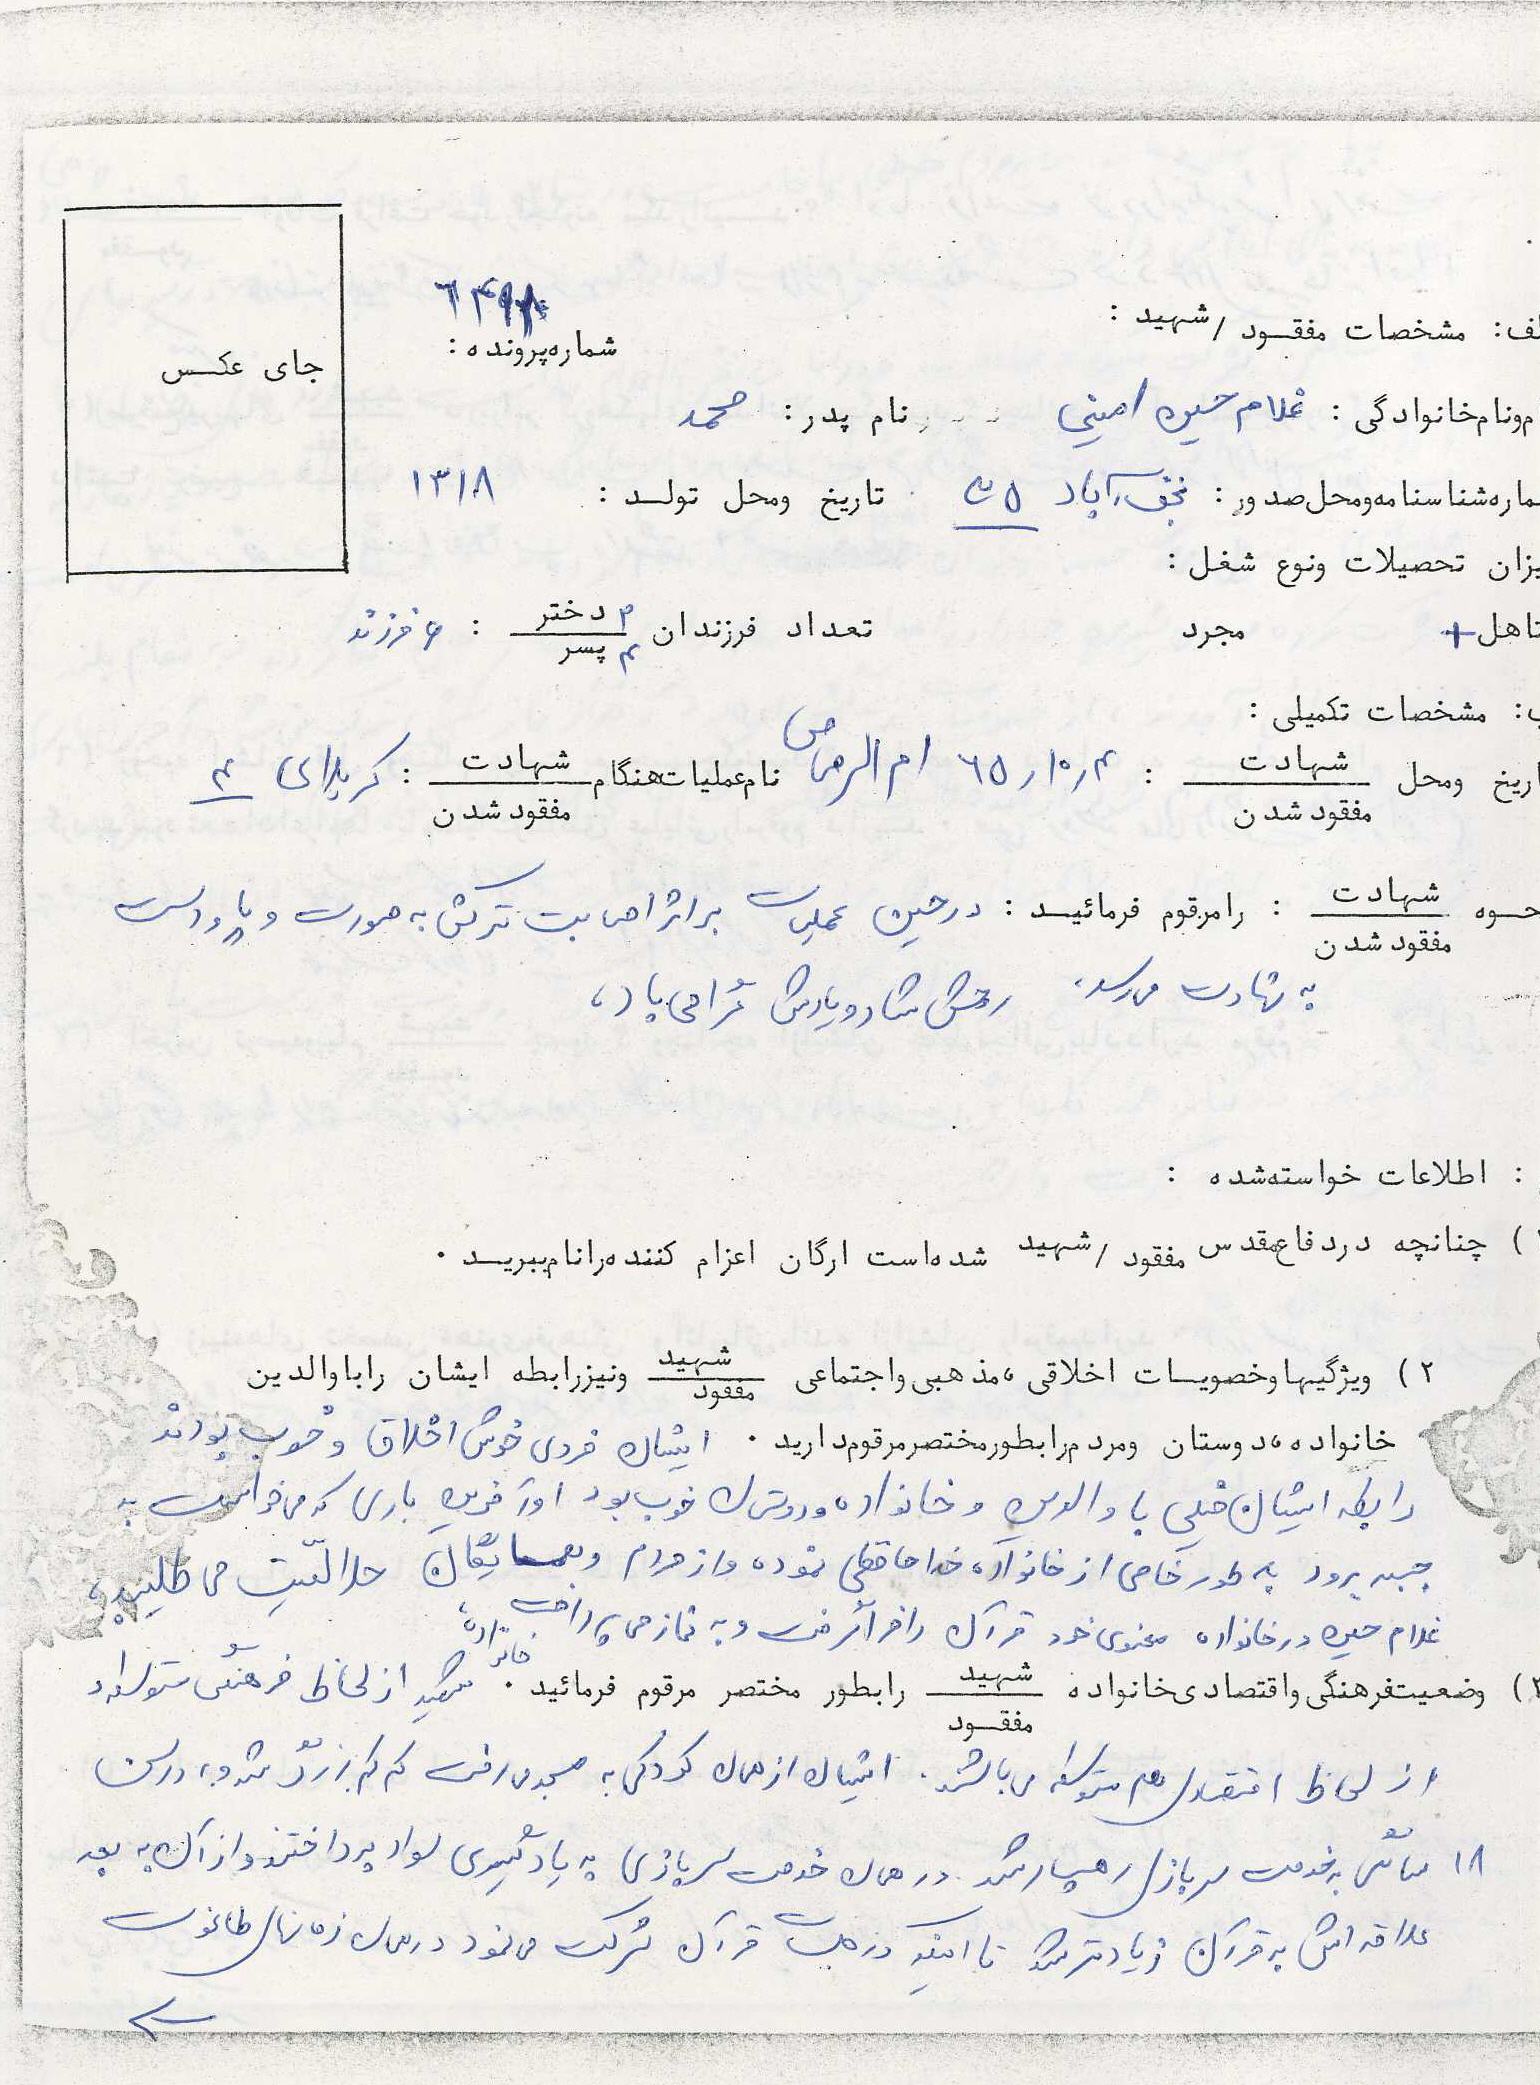 لف: مشخصات مفقود / شهید :
شماره پرونده :
جای عکس
م ونام خانوادگی : غلامحسین امینی نام پدر : محمد
ماره شناسنامه ومحل صدور : نجف آباد تاریخ ومحل تولد : ۱۳۱۸
یزان تحصیلات ونوع شغل :
تاهل + مجرد تعداد فرزندان ۲ دختر ۴ پسر : ۶ فرزند
ب: مشخصات تکمیلی :
اریخ ومحل شهادت مفقود شدن : ۶۵/۱۰/۴ ام الرصاص نام عملیات هنگام شهادت مفقود شدن : کربلای ۴
حوه شهادت مفقود شدن : را مرقوم فرمائید : در حین عملیات بر اثر اصابت ترکش به صورت و پا و دست
به شهادت می‌رسد، روحش شاد و یادش گرامی باد،
: اطلاعات خواسته شده :
۱) چنانچه در دفاع مقدس مفقود / شهید شده است ارگان اعزام کننده را نام ببرید .
۲) ویژگیها وخصویسات اخلاقی ، مذهبی واجتماعی شهید مفقود ونیز رابطه ایشان را با والدین
خانواده ، دوستان ومردم را بطور مختصر مرقوم دارید . ایشان فردی خوش اخلاق و خوب بودند
رابطه ایشان خیلی با والدین و خانواده و دوستان خوب بود او آخرین باری که می‌خواست به
جبهه برود به طور خاصی از خانواده خداحافظی نموده و از مردم و همسایگان حلالیت می‌طلبید،
غلام حسین در خانواده معنوی خود قرآن را فرا گرفت و به نماز می‌پرداخت
۳) وضعیت فرهنگی واقتصادی خانواده شهید مفقود را بطور مختصر مرقوم فرمائید . خانواده شهید از لحاظ فرهنگی متوسط و
از لحاظ اقتصادی هم متوسط می‌باشد. ایشان از همان کودکی به مسجد می‌رفت کم کم بزرگ شد و در سن
۱۸ سالگی به خدمت سربازی رهسپار شد در همان خدمت سربازی به یادگیری سواد پرداختند و از آن به بعد
علاقه اش به قرآن زیادتر شد تا اینکه در جلسات قرآن شرکت می‌نمود در همان زمانهای طاغوت